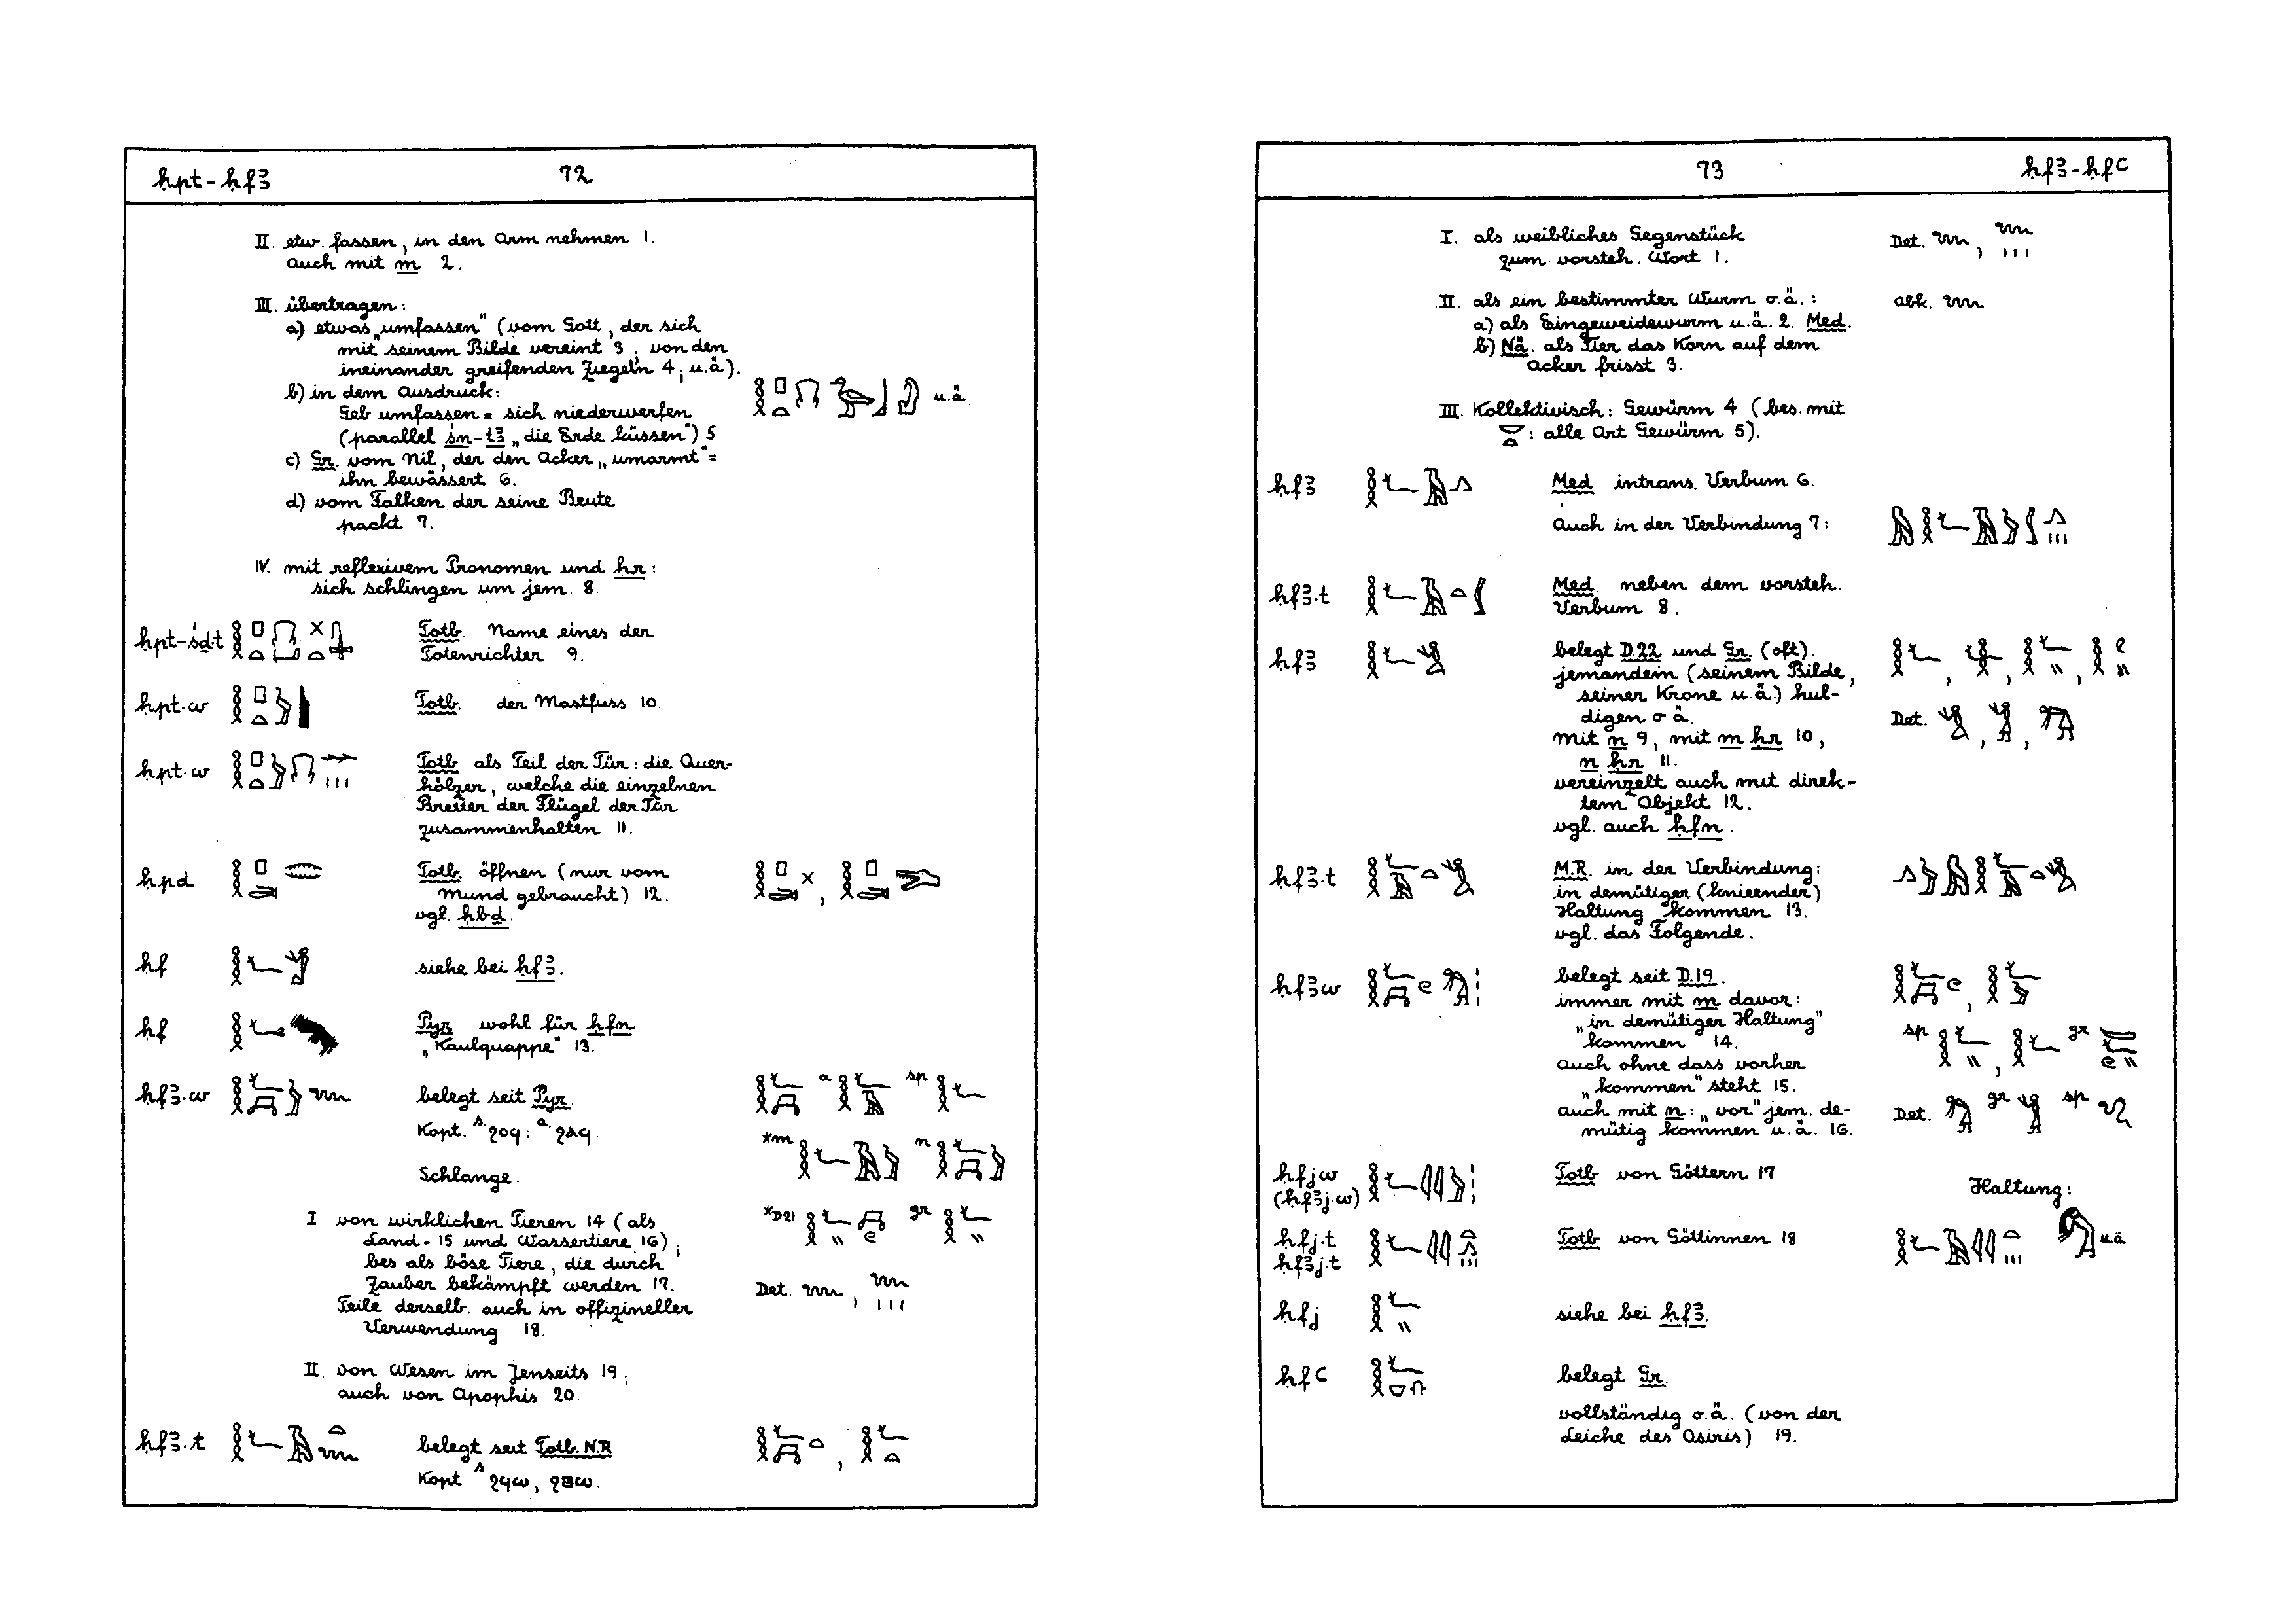 ḥpt - ḥfꜣ 72
II. etw. fassen, in den Arm nehmen 1.
auch mit m 2.
III. übertragen:
a) etwas „umfassen" (vom Gott, der sich
mit seinem Bilde vereint 3; von den
ineinander greifenden Ziegeln 4; u.ä.).
b) in dem Ausdruck:
Geb umfassen = sich niederwerfen u.ä.
(parallel śn-tꜣ „die Erde küssen") 5
c) Gr. vom Nil, der den Acker „umarmt" =
ihn bewässert 6.
d) vom Falken der seine Beute
packt 7.
IV. mit reflexivem Pronomen und ḥr:
sich schlingen um jem. 8.
ḥpt-śḏt Totb. Name eines der
Totenrichter 9.
ḥpt.w Totb. der Mastfuss 10.
ḥpt.w Totb als Teil der Tür: die Quer-
hölzer, welche die einzelnen
Bretter der Flügel der Tür
zusammenhalten 11.
ḥpd Totb. öffnen (nur vom
Mund gebraucht) 12.
vgl. ḥbd.
ḥf siehe bei ḥfꜣ.
ḥf Pyr wohl für ḥfn
„Kaulquappe" 13.
ḥfꜣ.w belegt seit Pyr. a sp
Kopt. s ϩоϥ: a ϩаϥ. *m n
Schlange.
I von wirklichen Tieren 14 (als *D21 gr
Land- 15 und Wassertiere 16);
bes als böse Tiere, die durch
Zauber bekämpft werden 17. Det. ,
Teile derselb. auch in offizineller
Verwendung 18.
II von Wesen im Jenseits 19;
auch von Apophis 20.
ḥfꜣ.t belegt seit Totb. N.R ,
Kopt s ϩϥω, ϩвω.
73 ḥfꜣ-ḥfꜥ
I. als weibliches Gegenstück Det. ,
zum vorsteh. Wort 1.
II. als ein bestimmter Wurm o.ä.: abk.
a) als Eingeweidewurm u.ä. 2. Med.
b) Nä. als Tier das Korn auf dem
Acker frisst 3.
III. Kollektivisch: Gewürm 4 (bes. mit
: alle Art Gewürm 5).
ḥfꜣ Med intrans. Verbum 6.
Auch in der Verbindung 7:
ḥfꜣ.t Med. neben dem vorsteh.
Verbum 8.
ḥfꜣ belegt D.22 und Gr. (oft).
jemandem (seinem Bilde,
seiner Krone u.ä.) hul-
digen o ä. Det.
mit n 9, mit m ḥr 10,
n ḥr 11.
vereinzelt auch mit direk-
tem Objekt 12.
vgl. auch ḥfn.
ḥfꜣ.t M.R. in der Verbindung:
in demütiger (knieender)
Haltung kommen 13.
vgl. das Folgende.
ḥfꜣw belegt seit D.19.
immer mit m davor:
„in demütiger Haltung"
kommen 14. sp gr
auch ohne dass vorher
„kommen" steht 15.
auch mit n: „vor" jem. de- Det. gr sp
mütig kommen u.ä. 16.
ḥfjw Totb von Göttern 17
(ḥfꜣj.w) Haltung:
ḥfj.t Totb von Göttinnen 18 u.ä.
ḥfꜣj.t
ḥfj siehe bei ḥfꜣ.
ḥfꜥ belegt Gr.
vollständig o.ä. (von der
Leiche des Osiris) 19.